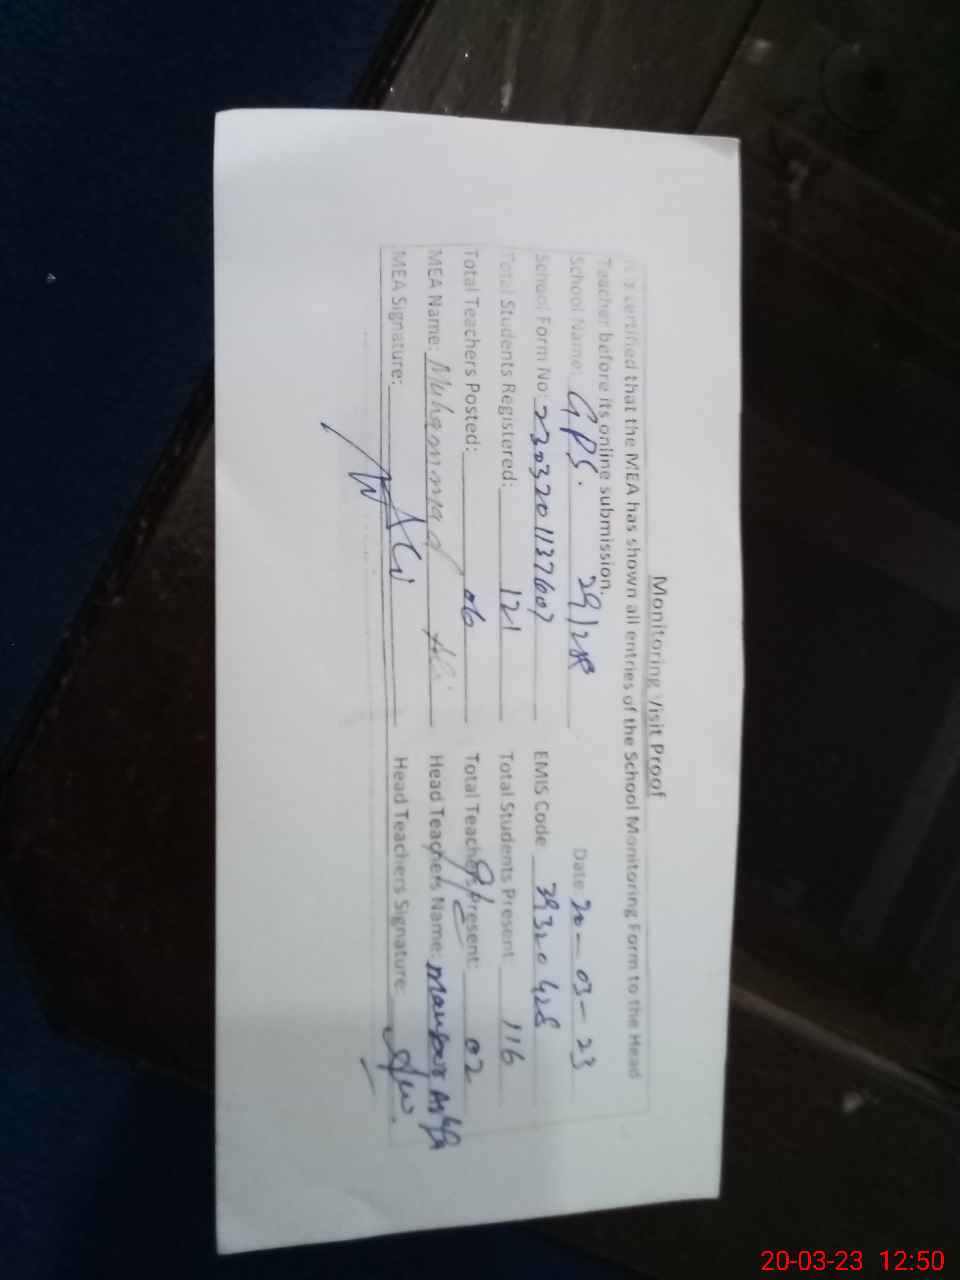 Monitoring Visit Proof
It is certified that the MEA has shown all entries of the School Monitoring Form to the Head
Teacher before its online submission.
School Name: GPS. 29/2R Date: 20-03-23
School Form No: 2303201137607 EMIS Code 39320428
Total Students Registered: 121 Total Students Present 116
Total Teachers Posted: 06 Total Teachers Present: 02
MEA Name: Muhammad Ali Head Teachers Name:
MEA Signature: Head Teachers Signature:
20-03-23 12:50